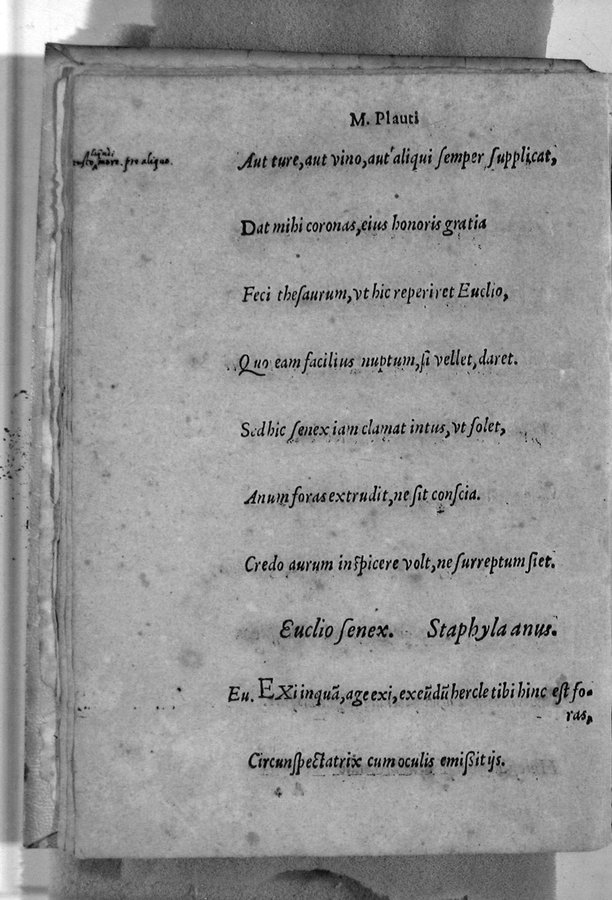 M. Plauti
Aut ture, aut vino, aut aliqui ſemper ſupplicat,
more. pro aliquo.
Dat mihi coronas, eius honoris gratia
Feci theſaurum, vt hic reperiret Euclio,
Quo eam facilius nuptum, ſi vellet, daret.
Sed hic ſenex iam clamat intus, vt ſolet,
Anum foras extrudit, ne ſit conſcia.
Credo aurum inſpicere volt, ne ſurreptum ſiet.
Euclio ſenex. Staphyla anus.
Eu. EXi inquã, age exi, exeũdũ hercle tibi hinc eſt fo-
ras,
Circunſpectatrix cum oculis emißitijs.